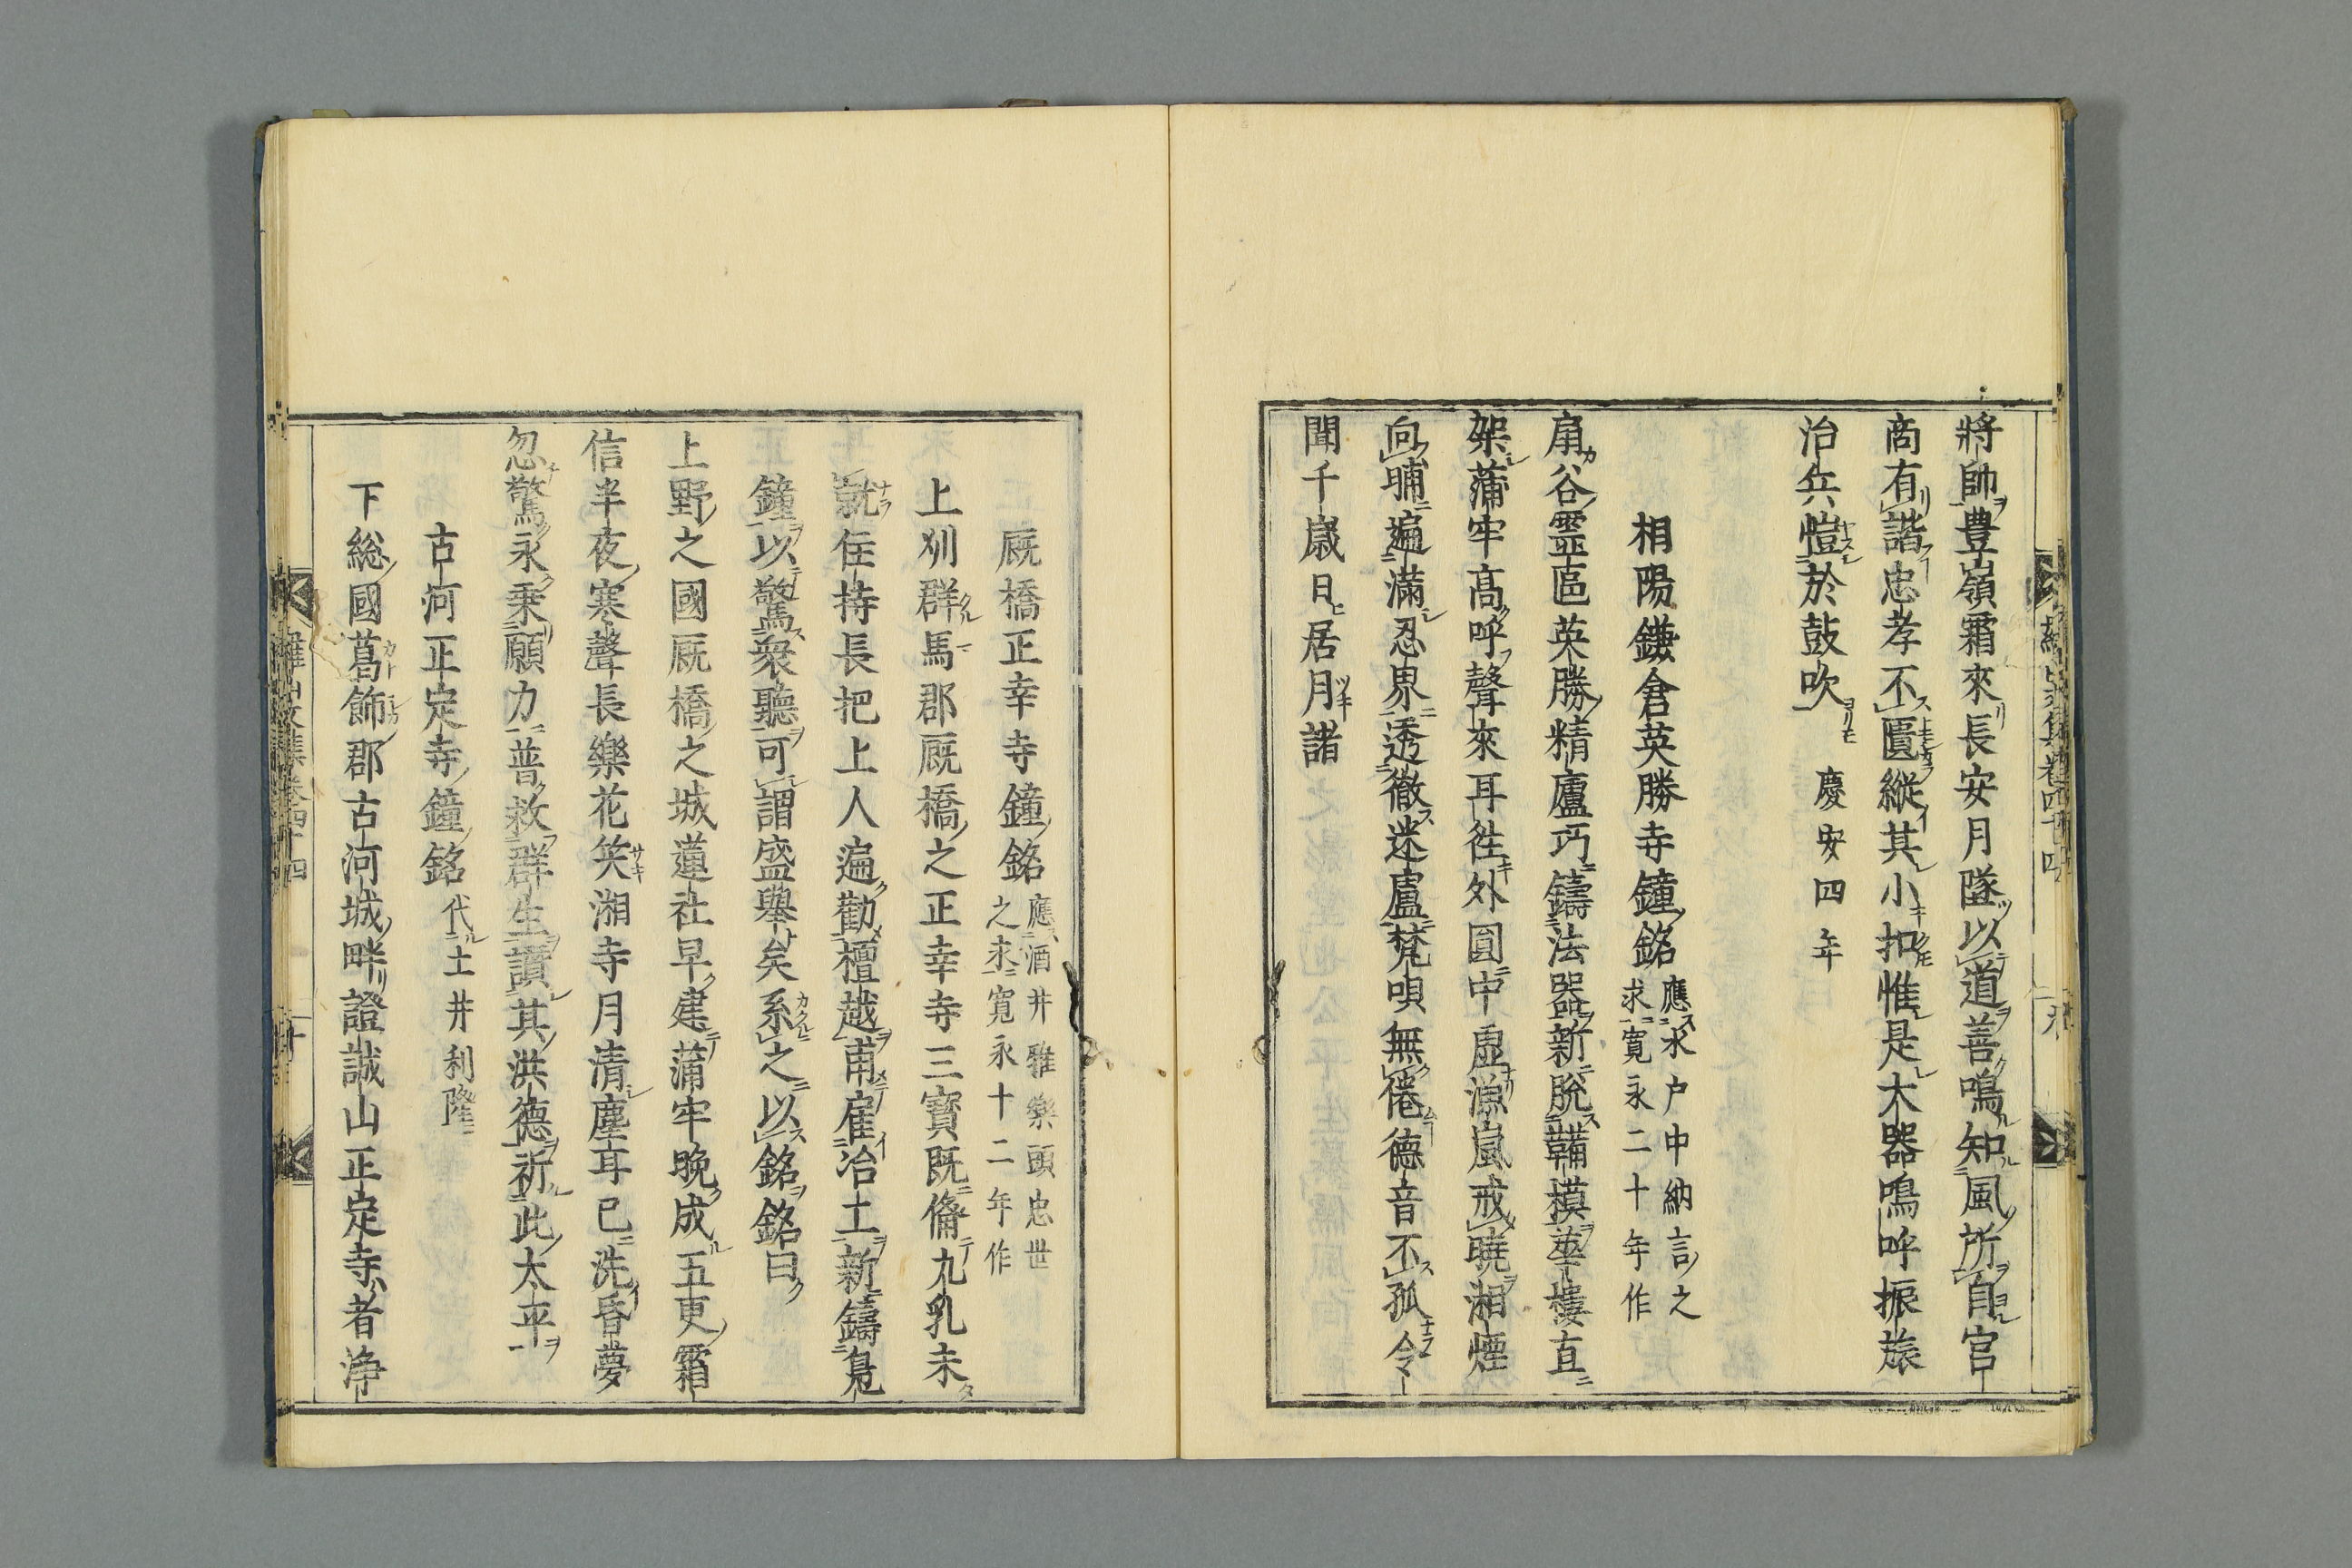 將帥豊嶺霜來長安月墜以道善鳴知風所自官
商有諧忠孝不匱縱其小扣惟是大器鳴呼振旅
治兵愷於鼓吹 慶安四年
相陽鎌倉英勝寺鐘銘 應水戸中納言之
求寛永二十年作
扇谷靈區英勝精廬巧鑄法器新脫鞴模華樓直
架蒲牢高呼聲來耳徃外圓中虛漁嵐戒曉湘煙
向晡遍滿忍界透徹迷廬梵唄無倦德音不孤令
聞千歳日居月諸
厩橋正幸寺鐘銘 應酒井雅樂頭忠世
之求寛永十二年作
上刕群馬郡厩橋之正幸寺三寳既備九乳未
就住持長把上人遍勸檀越甫雇冶土新鑄鳬
鐘以驚衆聽可謂盛舉矣系之以銘銘曰
上野之國厩橋之城蓮社早建蒲牢晩成五更霜
信半夜寒聲長樂花笑湘寺月清塵耳已洗昏夢
忽驚永乗願力普救群生讚其洪德祈此太平
古河正定寺鐘銘 代土井利隆
下総國葛飾郡古河城畔證誠山正定寺者浄